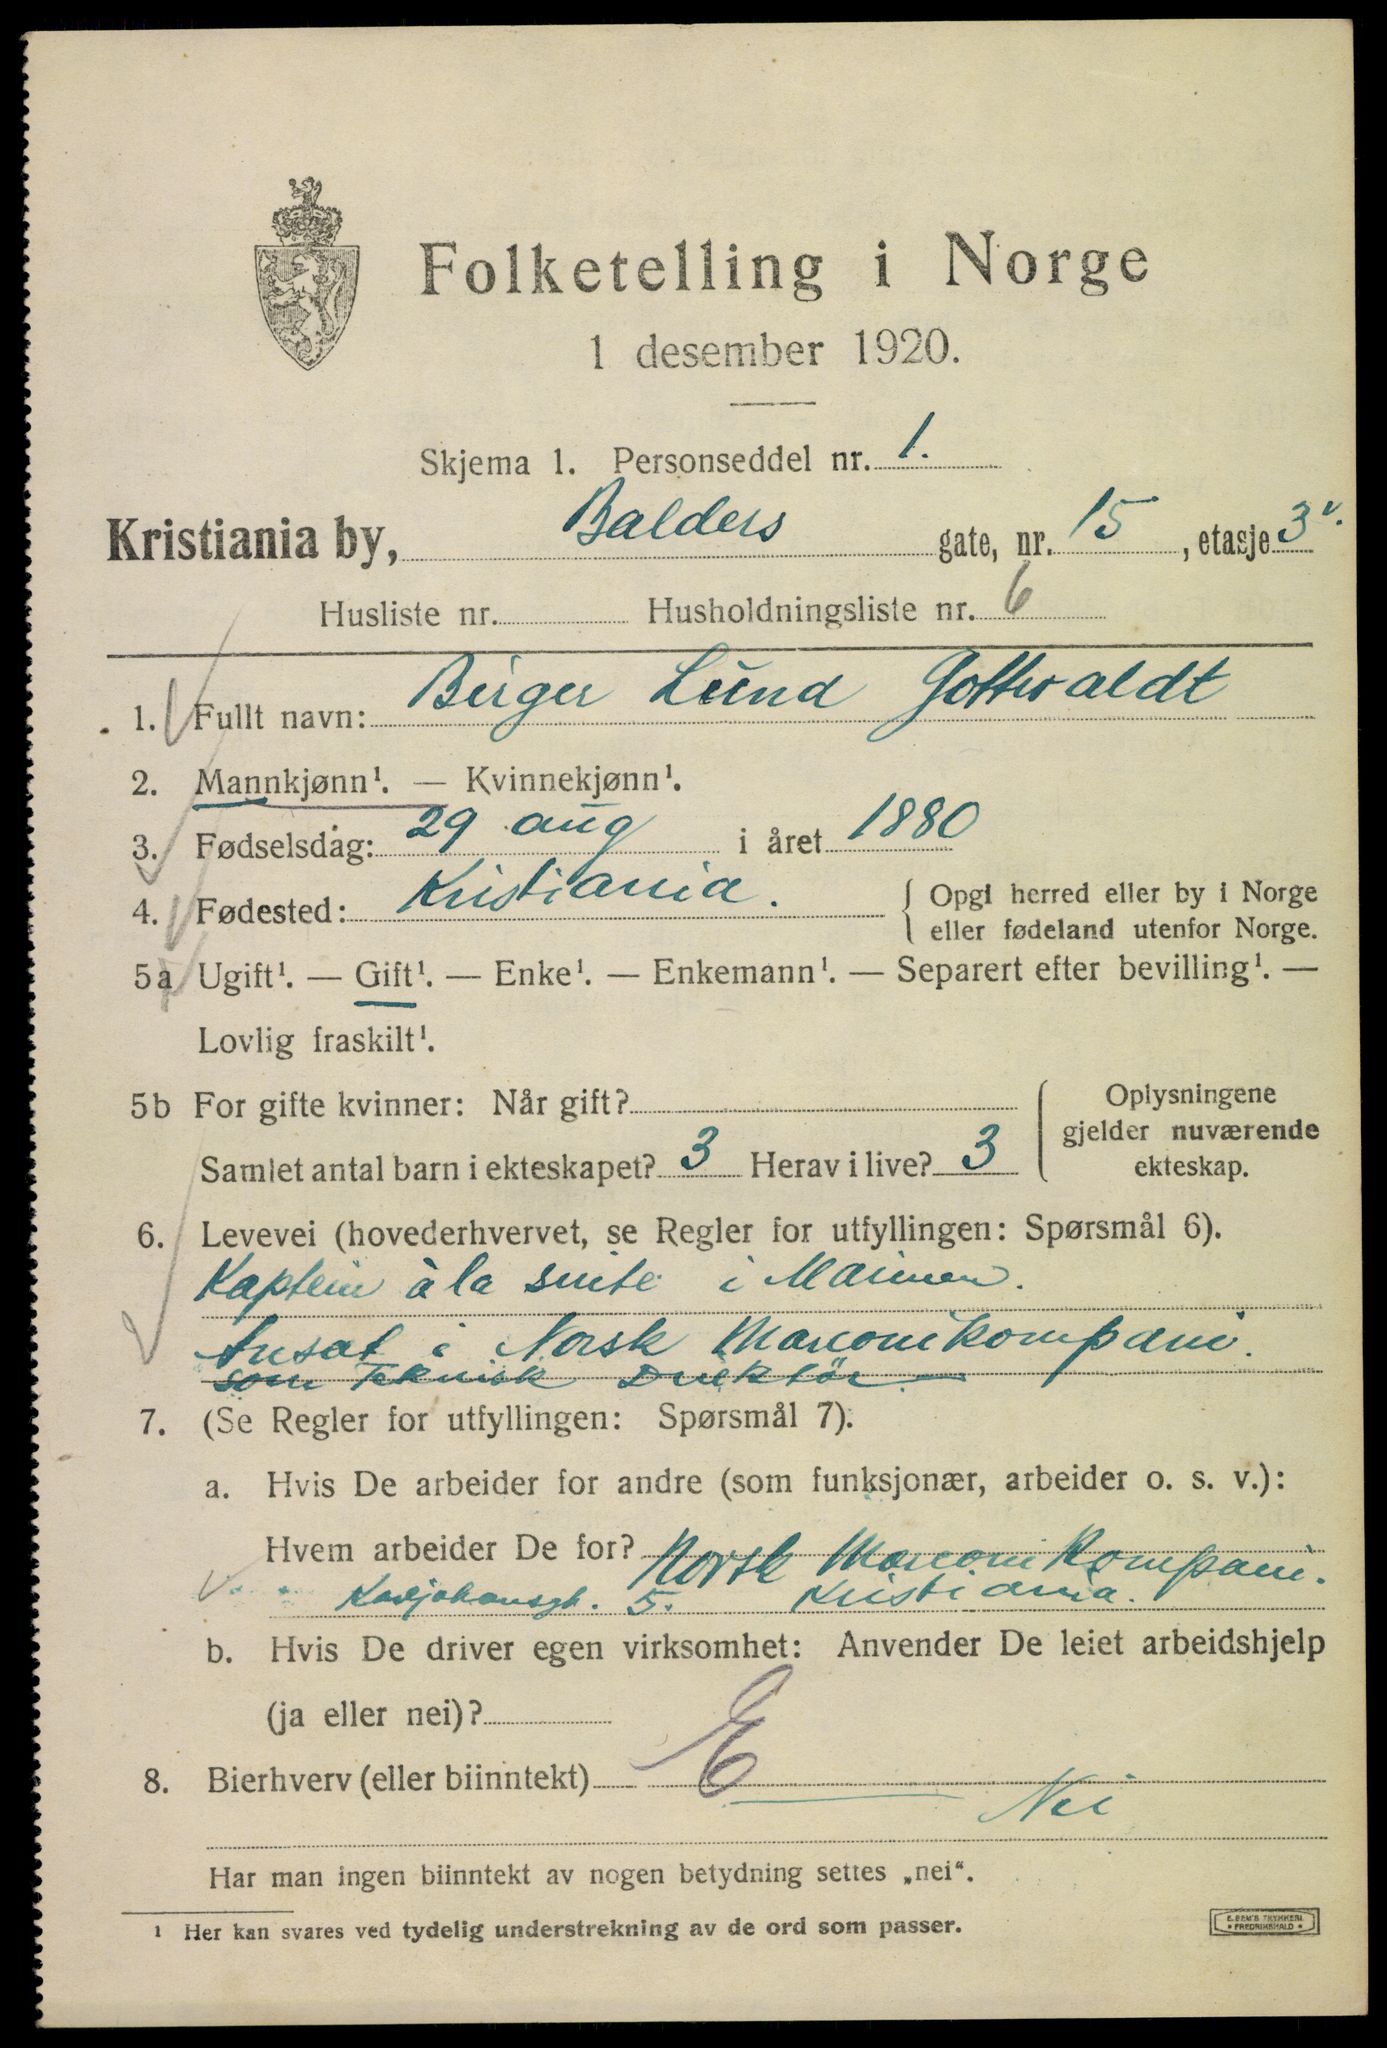 Folketelling i Norge
1 desember 1920.
Skjema 1. Personseddel nr. 1.
Kristiania by, Balders gate, nr. 15, etasje 3 v.
Husliste nr. Husholdningsliste nr. 6
1. Fullt navn: Birger Lund Gottwaldt
2. Mannkjønn¹. — Kvinnekjønn¹.
3. Fødselsdag: 29 aug i året 1880
4. Fødested: Kristiania. { Opgi herred eller by i Norge
eller fødeland utenfor Norge.
5a Ugift¹. — Gift¹. — Enke¹. — Enkemann¹. — Separert efter bevilling¹. —
Lovlig fraskilt¹.
5b For gifte kvinner: Når gift?
Samlet antal barn i ekteskapet? 3 Herav i live? 3
Oplysningene
gjelder nuværende
ekteskap.
6. Levevei (hovederhvervet, se Regler for utfyllingen: Spørsmål 6).
Kaptein à la suite i Marinen.
Ansat i Norsk Marconikompani.
som Teknisk Direktör
7. (Se Regler for utfyllingen: Spørsmål 7).
a. Hvis De arbeider for andre (som funksjonær, arbeider o. s. v.):
Hvem arbeider De for? Norsk Marconi Kompani.
Karljohansgt. 5. Kristiania.
b. Hvis De driver egen virksomhet: Anvender De leiet arbeidshjelp
(ja eller nei)?
E
8. Bierhverv (eller biinntekt)
Nei
Har man ingen biinntekt av nogen betydning settes „nei“.
¹ Her kan svares ved tydelig understrekning av de ord som passer.
E. SEM'S TRYKKERI
FREDRIKSHALD